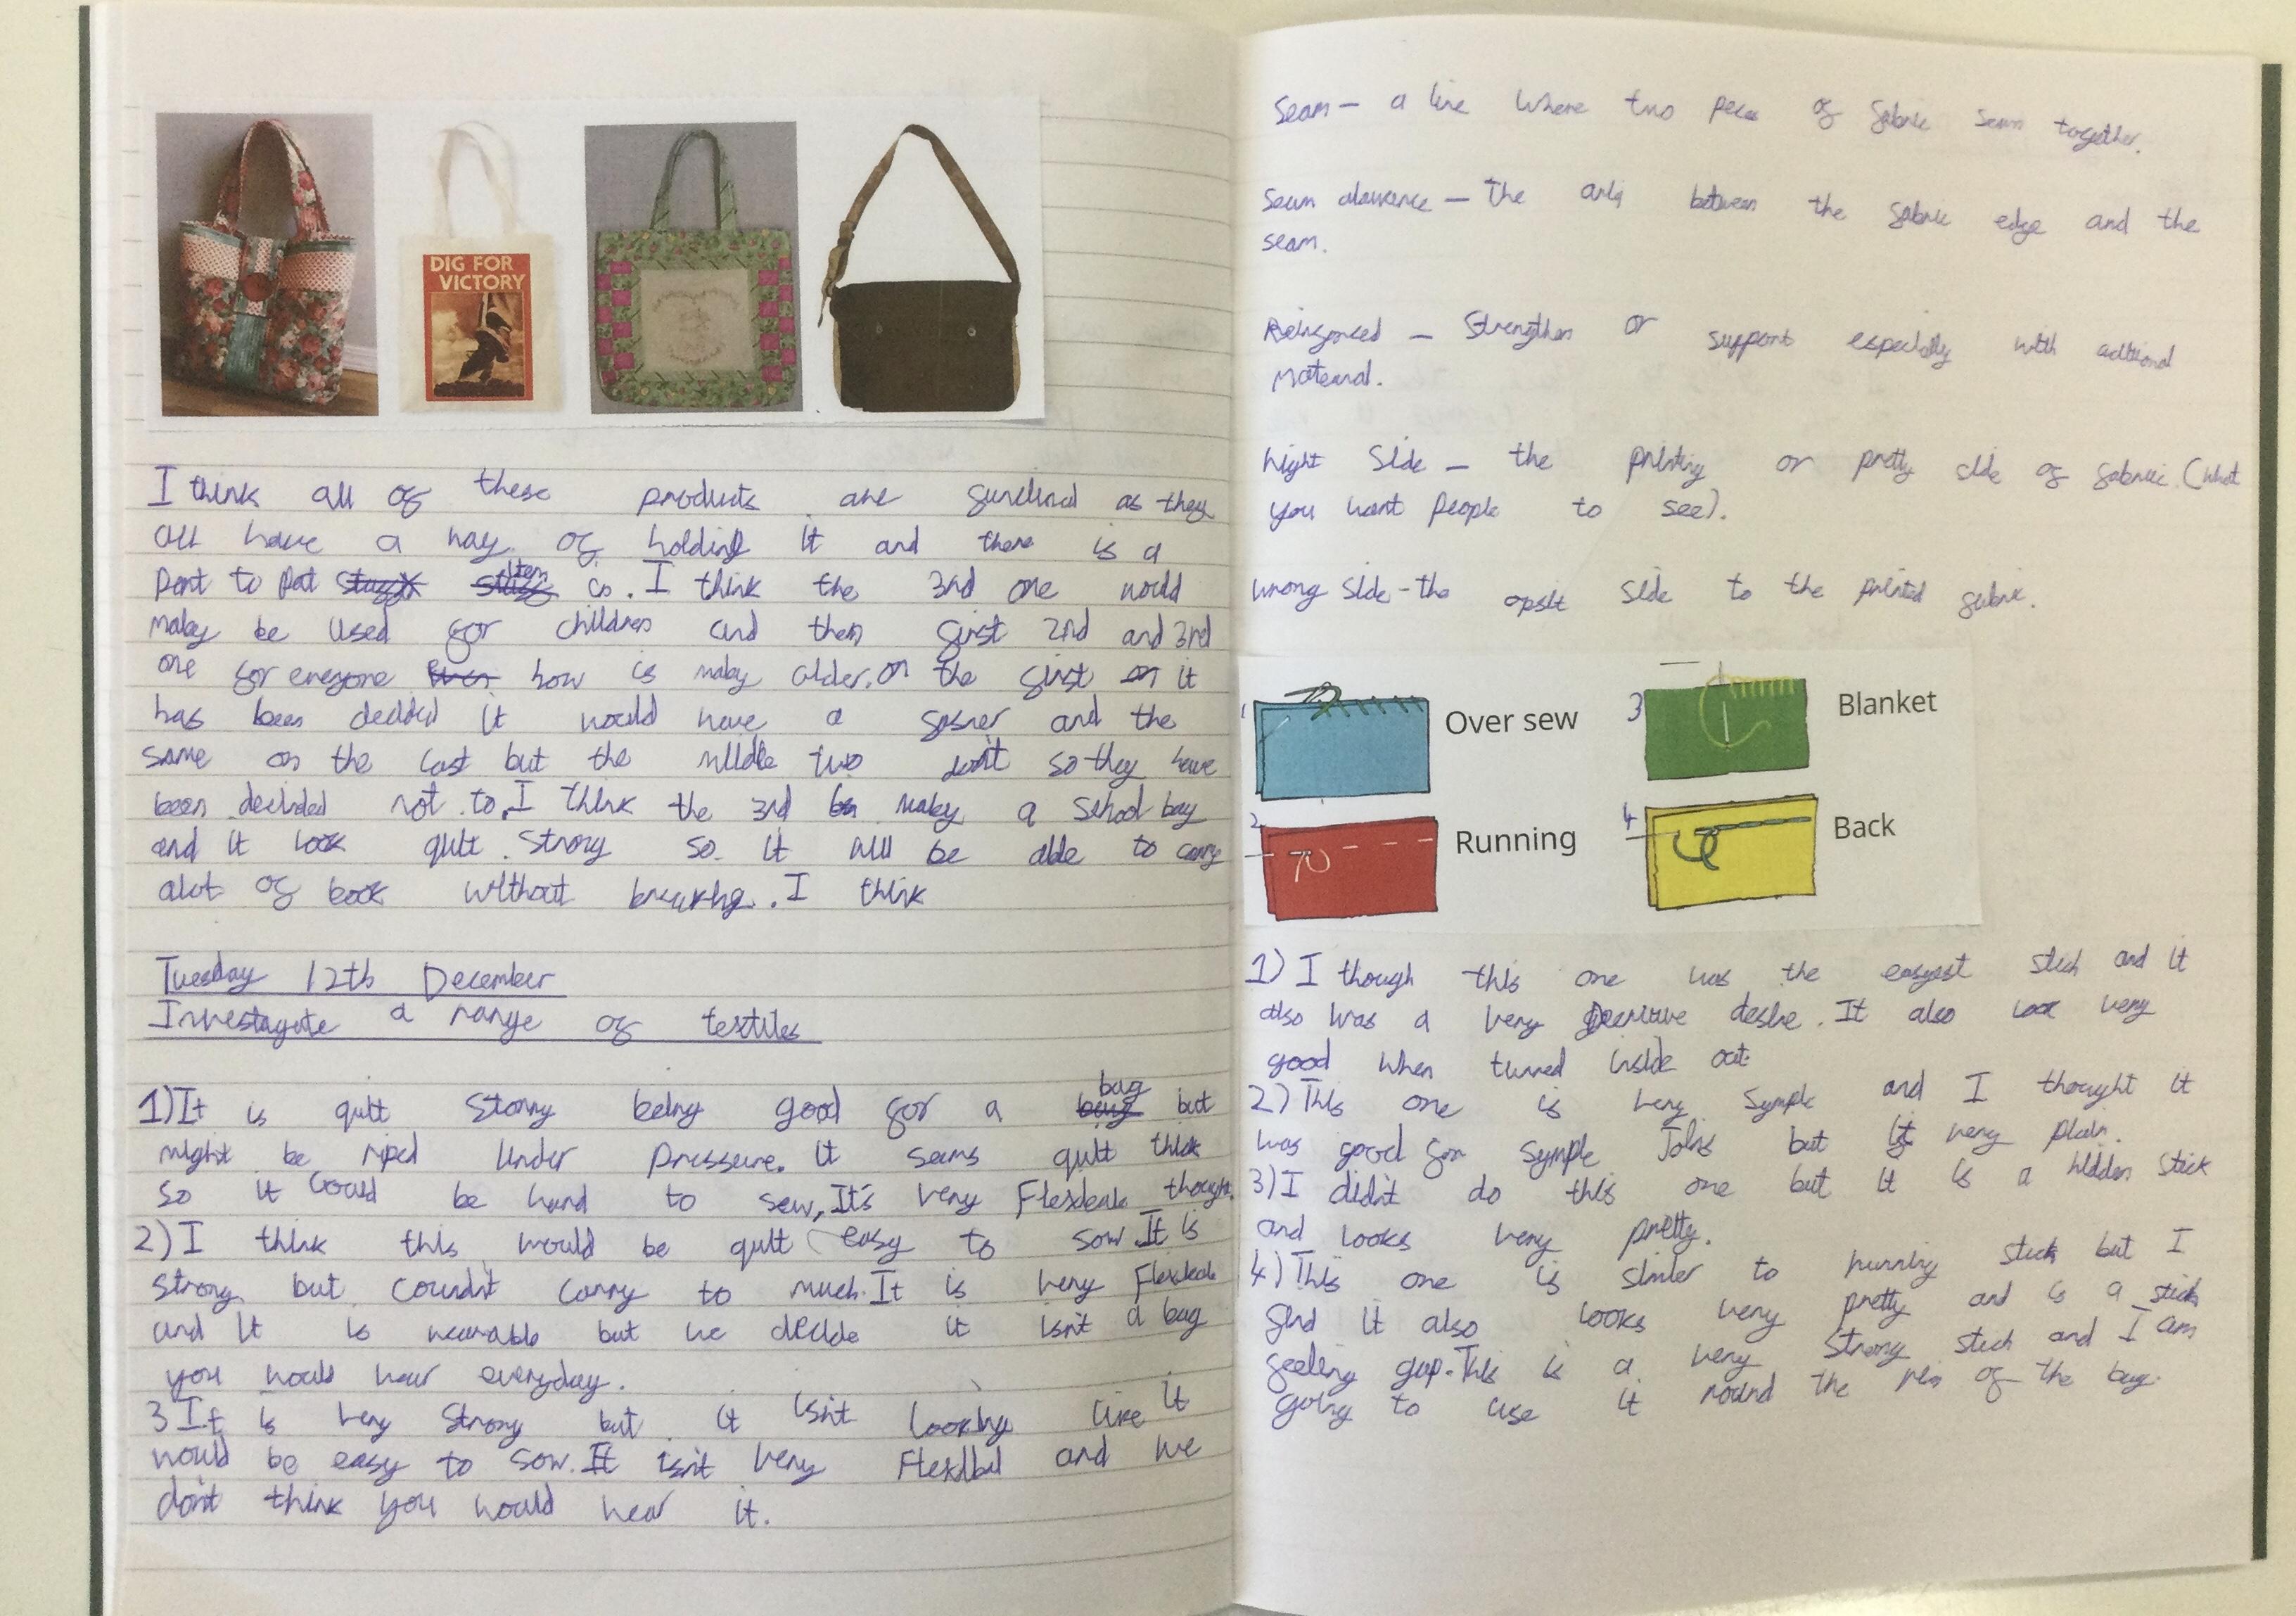 DIG FOR
VICTORY
I think all of these products are as they
all have a way of holding it and there is a
part to pat item . I think the 3rd one would
maby be used for children and then first 2nd and 3rd
one for everyone how is maby older. on the first it
has been decided it would have a and the
same on the last but the middle two don't so they have
been decided not to. I think the 3rd maby a school bag
and it look quit strong so it will be able to carry
alot of book without breaking. I think
Tuesday 12th December
Investagate a range of textiles
1) It is quit strong being good for a bag but
might be riped under pressure. it seams quit thick
so it could be hard to sew, It's very thougth
2) I think this would be quit easy to sow. It is
strong but coundn't carry to much. It is very
and it is wearable but we decide it isn't a bag
you would wear everyday.
3 It is very strong but it isn't looking like it
would be easy to sow. It isn't very Flexibal and we
don't think you would wear it.
Seam - a line where two of fabric sewn together.
Seam - The between the fabric edge and the
seam.
- strengthen or support especially with
Matearal.
hight side - the printing or pretty side of fabric (what
you want people to see).
wrong side - the side to the printed fabric.
1
Over sew
3
Blanket
2
Running
4
Back
1) I though this one was the easyest stich and it
also was a very . It also look very
good when turned inside out.
2) This one is very symple and I thought it
was good for symple but very plain.
3) I didn't do this one but it is a hidden stick
and looks very pretty.
4) This one is similer to running stick but I
find it also looks very pretty and is a stich
. This is a very strong stich and I am
going to use it round the of the bag.